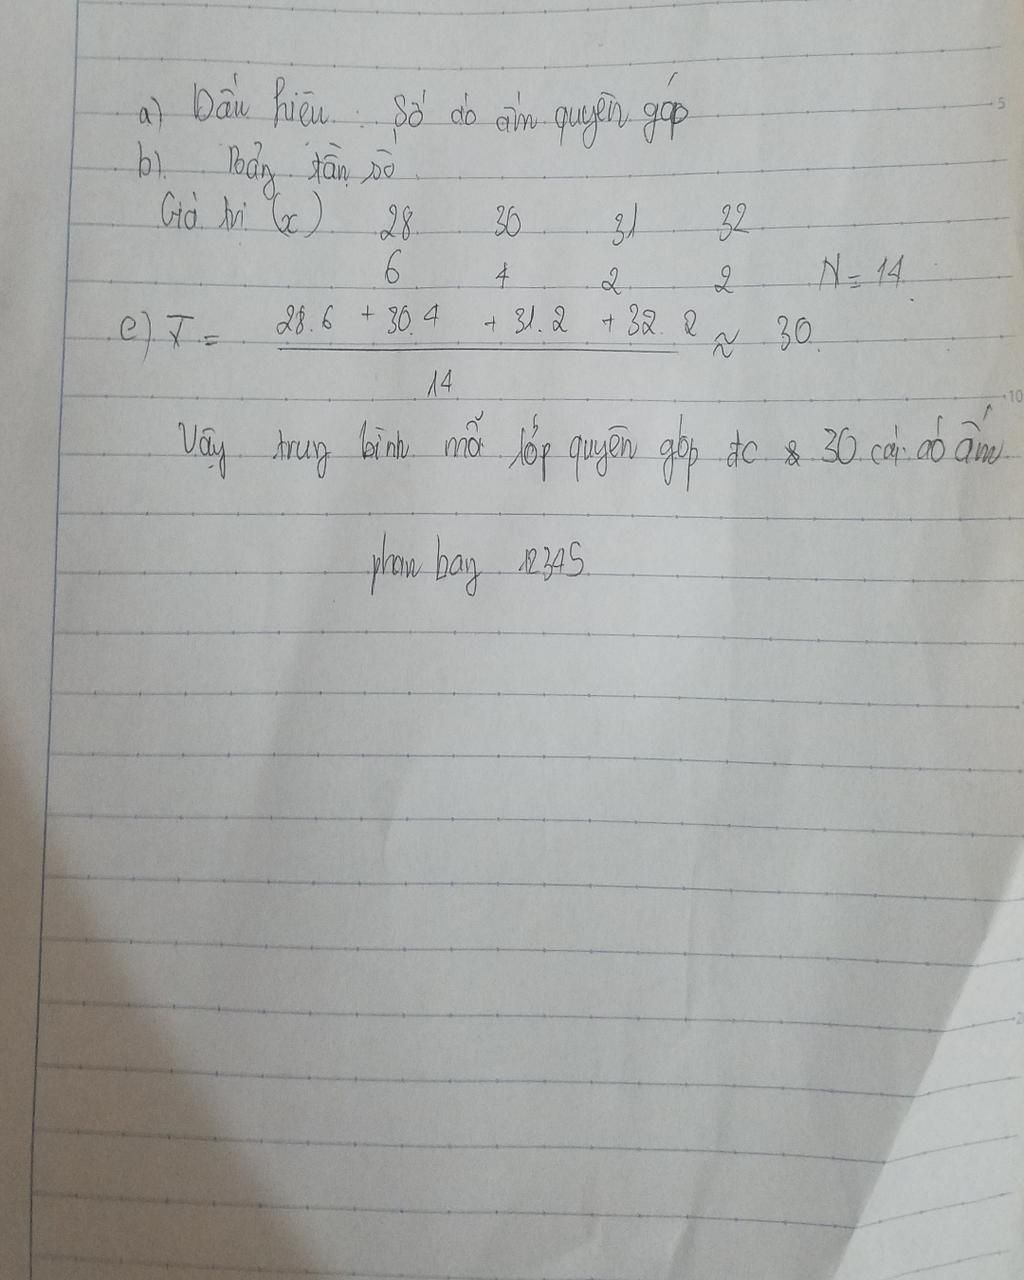 a) Dấu hiệu : Số áo ấm quyên góp
b) Bảng tần số
Giá trị (x) 28 30 31 32
6 4 2 2 N = 14
c) X̅ = 28.6 + 30.4 + 31.2 + 32.2 ≈ 30
14
Vậy trung bình mỗi lớp quyên góp đc 30 cái áo ấm
phan bay 12345
5
10